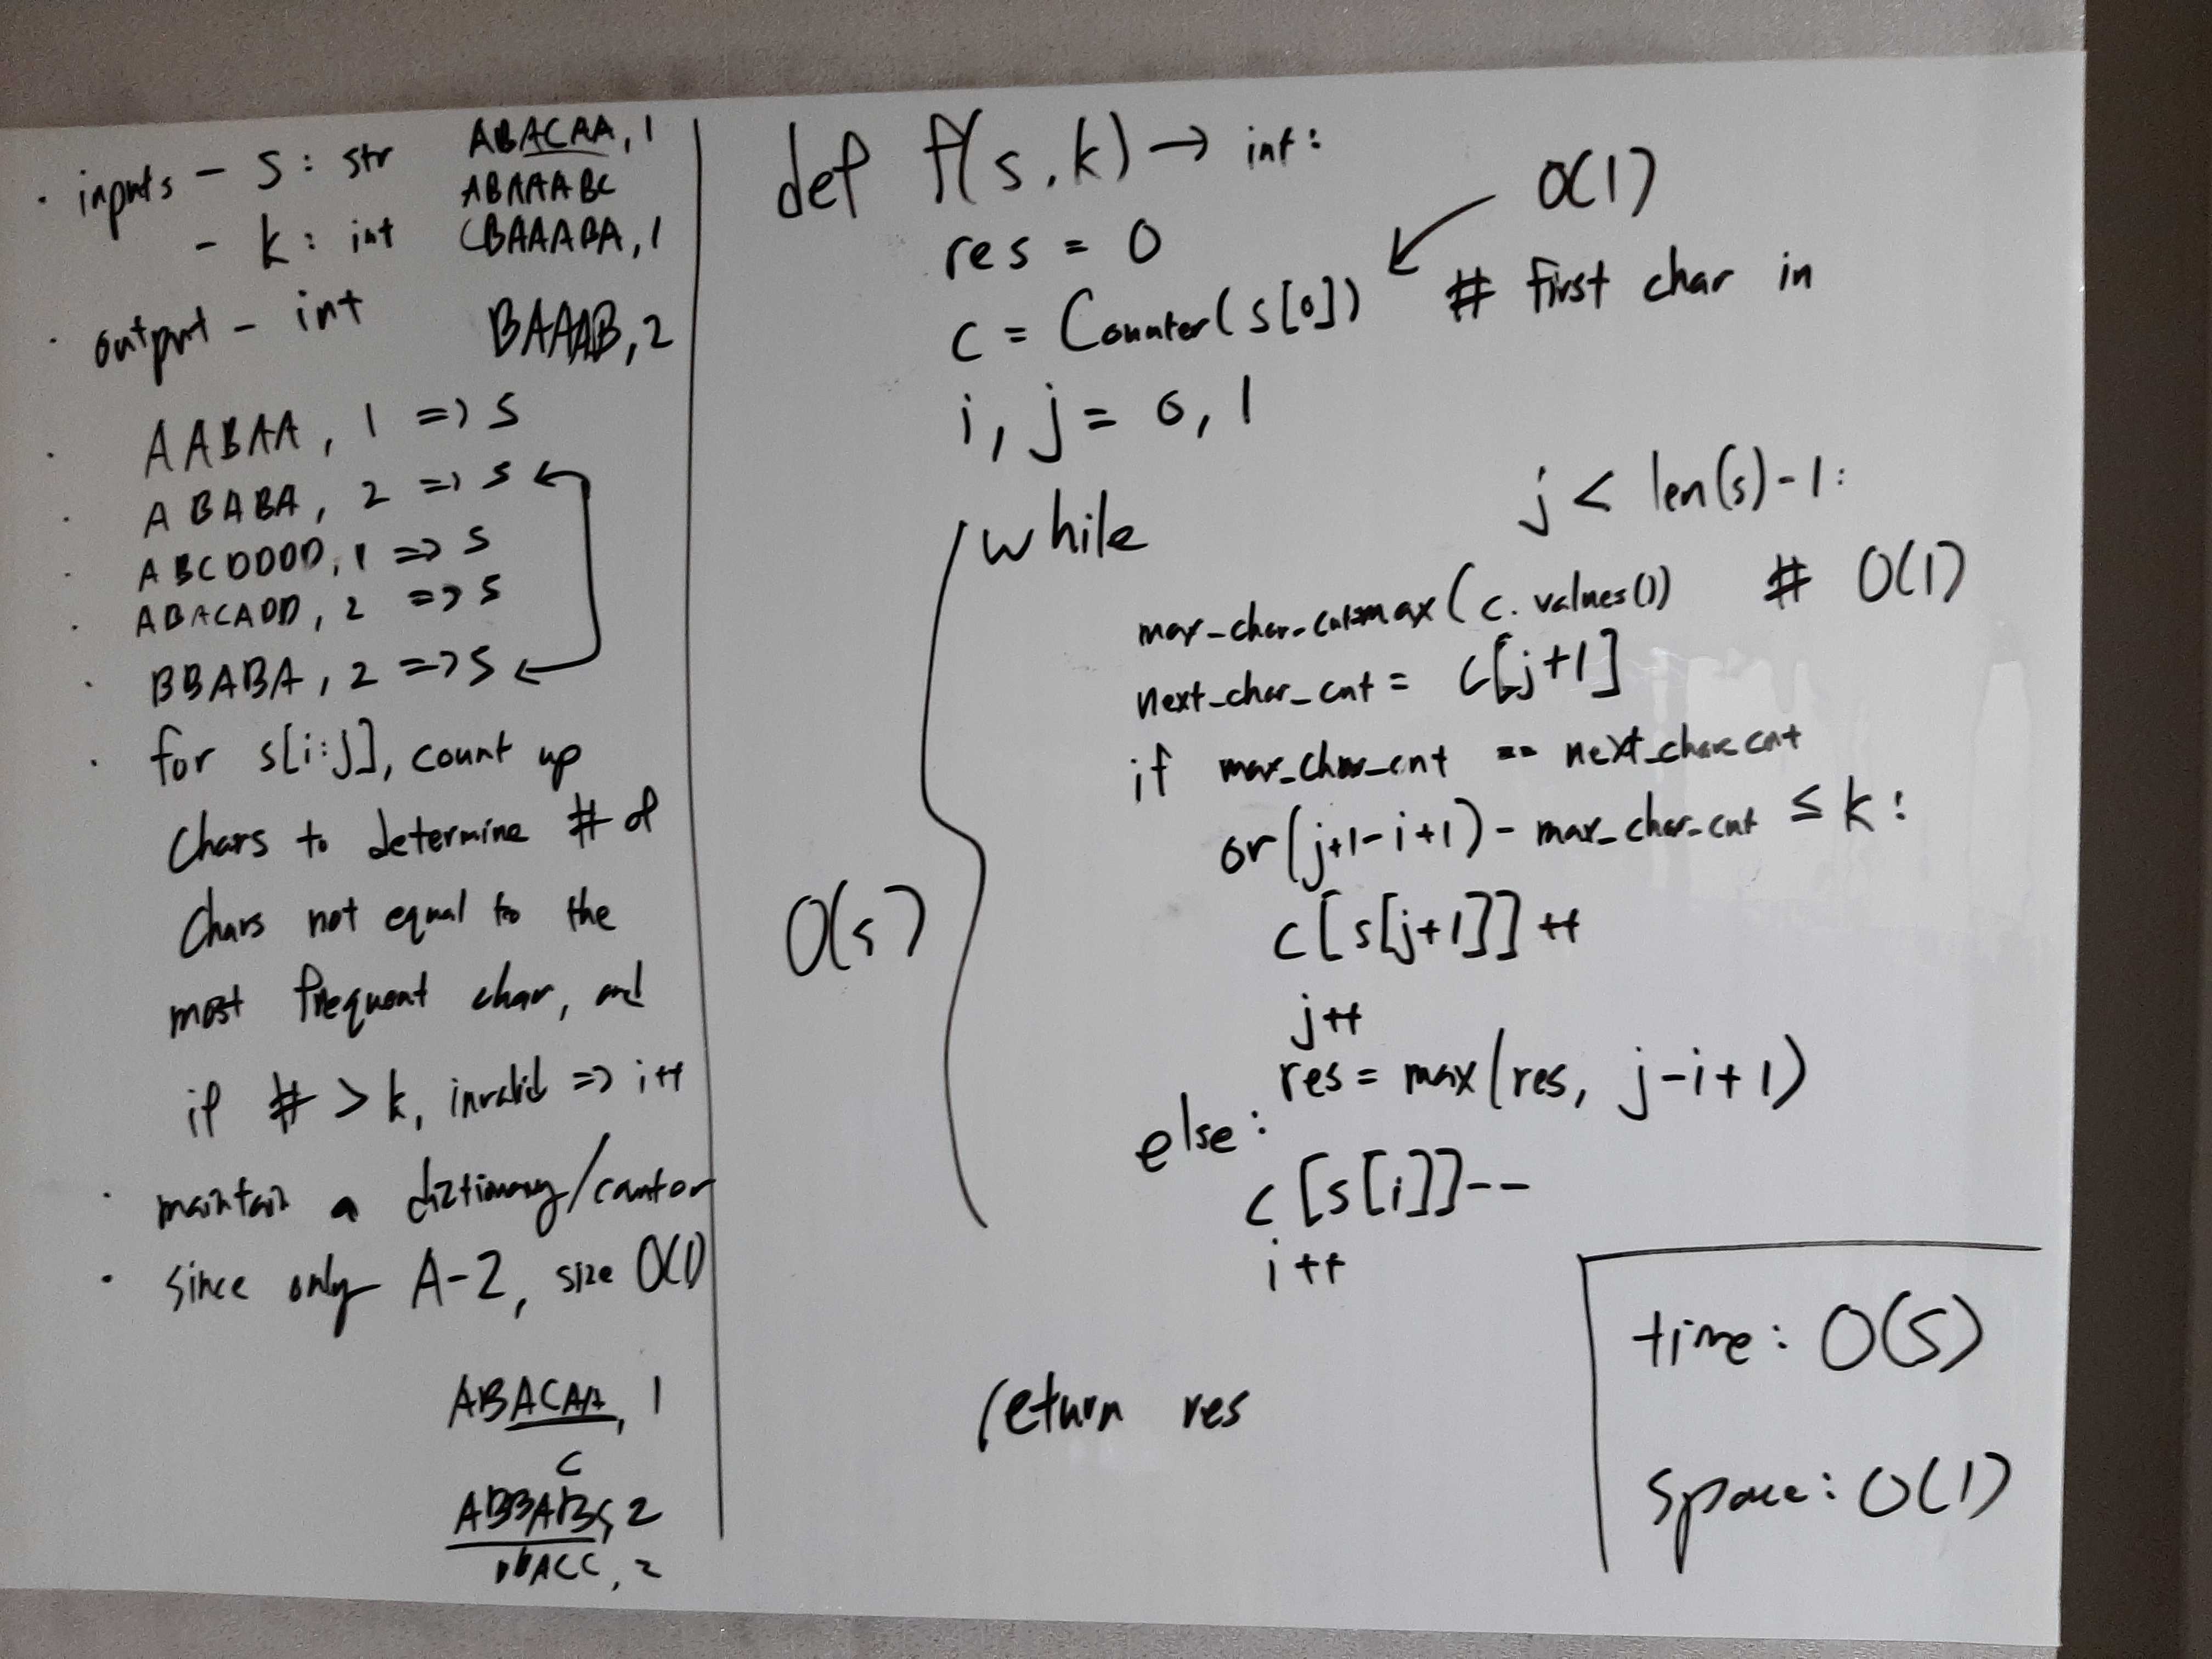 · inputs - s : str
- k : int
· output - int
ABACAA, 1
ABAAABC
CBAAABA, 1
BAAAB, 2
· AABAA, 1 => 5
· ABABA, 2 => 5
· ABCDDDD, 1 => 5
· ABACADD, 2 => 5
· BBABA, 2 => 5
· for s[i:j], count up
chars to determine # of
chars not equal to the
most frequent char, and
if # > k, invalid => i++
· maintain a dictionary/counter
· since only A-Z, size O(1)
ABACAA, 1
C
2
ACC, 2
def f(s, k) → int:
res = 0
O(1)
c = Counter(s[0]) # first char in
i, j = 0, 1
while j < len(s)-1:
max_char_cnt=max(c.values()) # O(1)
next_char_cnt = c[j+1]
if max_char_cnt == next_char_cnt
or (j+1-i+1) - max_char_cnt ≤ k:
c[s[j+1]]++
j++
res = max(res, j-i+1)
else:
c[s[i]]--
i++
O(s)
return res
time: O(S)
space: O(1)